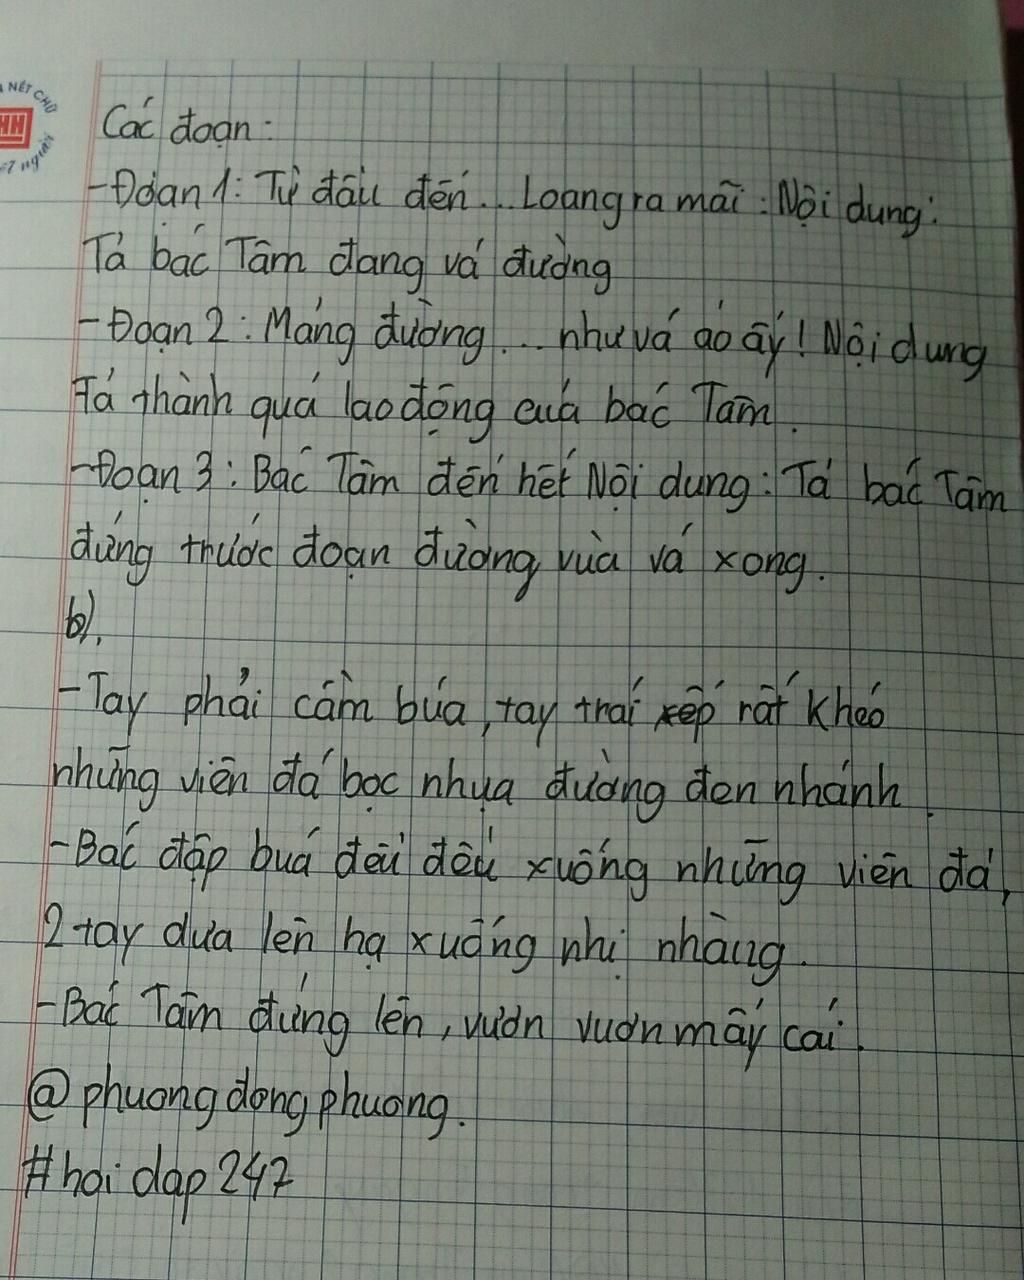 NÉT CHỮ
HN
người
Các đoạn:
-Đoạn 1: Từ đầu đến...Loang ra mãi: Nội dung:
Tả bác Tâm đang vá đường
-Đoạn 2: Mảng đường... như vá áo ấy! Nội dung
Tả thành quả lao động của bác Tâm.
-Đoạn 3: Bác Tâm đến hết Nội dung: Tả bác Tâm
đứng trước đoạn đường vừa vá xong.
b).
-Tay phải cầm búa, tay trái xếp rất khéo
những viên đá bọc nhựa đường đen nhánh.
-Bác đập buá đều đều xuống những viên đá,
2 tay đưa lên hạ xuống nhị nhàng.
-Bác Tâm đứng lên, vươn vươn mấy cái.
@phuongdongphuong.
#hoidap247